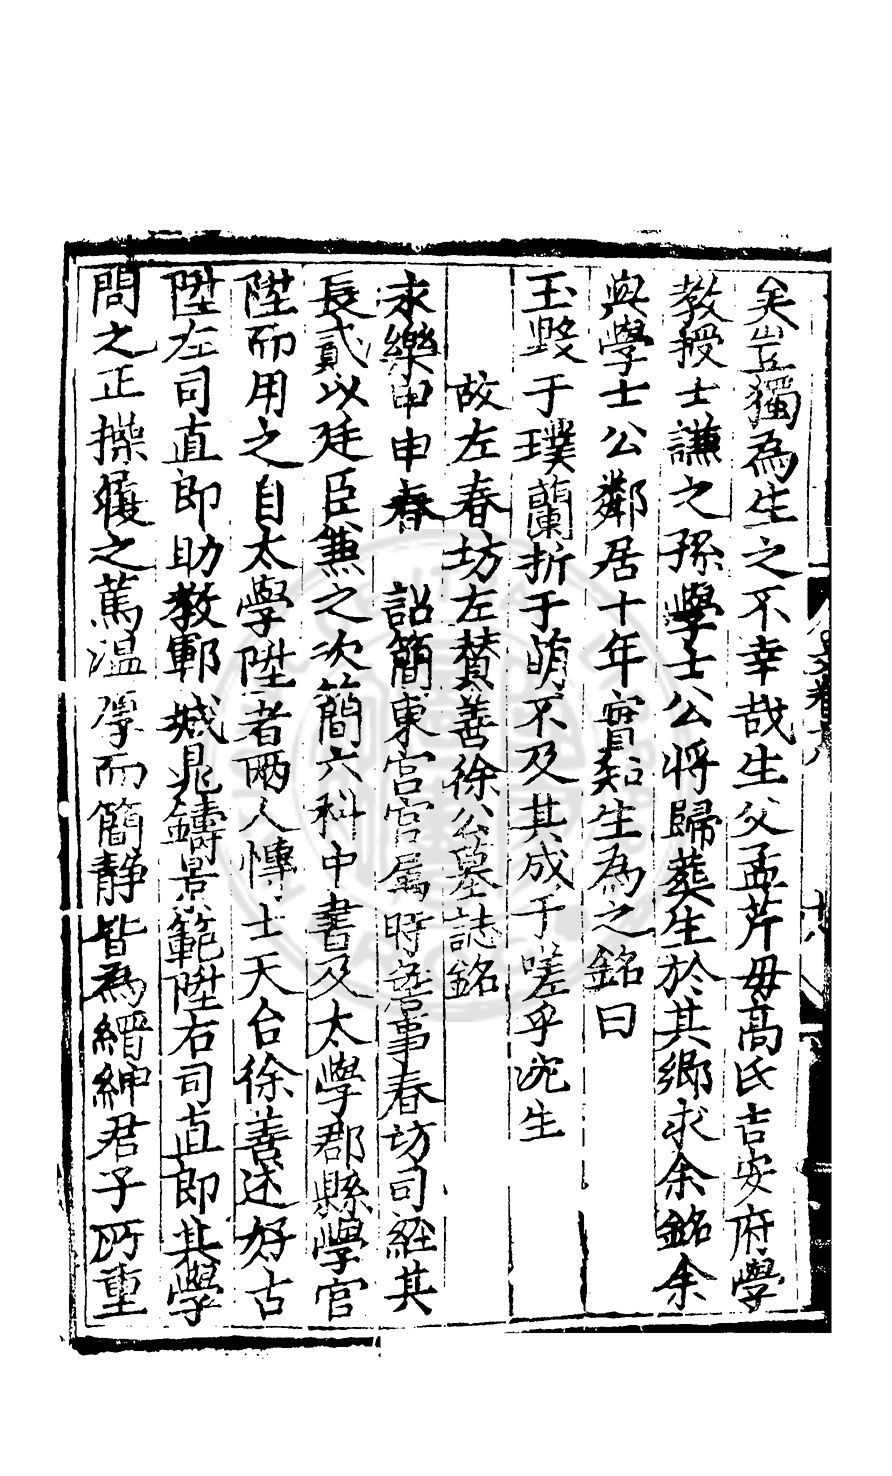 矣豈獨為生之不幸哉生父孟芹母髙氏吉安府學
教授士謙之孫學士公將歸葬生於其鄉求余銘余
與學士公鄰居十年實知生為之銘曰
玉毀于璞蘭折于萌不及其成于嗟乎沈生
故左春坊左賛善徐公墓誌銘
永樂甲申春 詔簡東宫宫属時詹事春坊司經其
長貳以廷臣兼之次簡六科中書及太學郡縣學官
陞而用之自太學陞者兩人愽士天台徐善述好古
陞左司直郎助教鄆城晁鑄景範陞右司直郎其學
問之正操履之篤温厚而簡静皆為縉紳君子所重